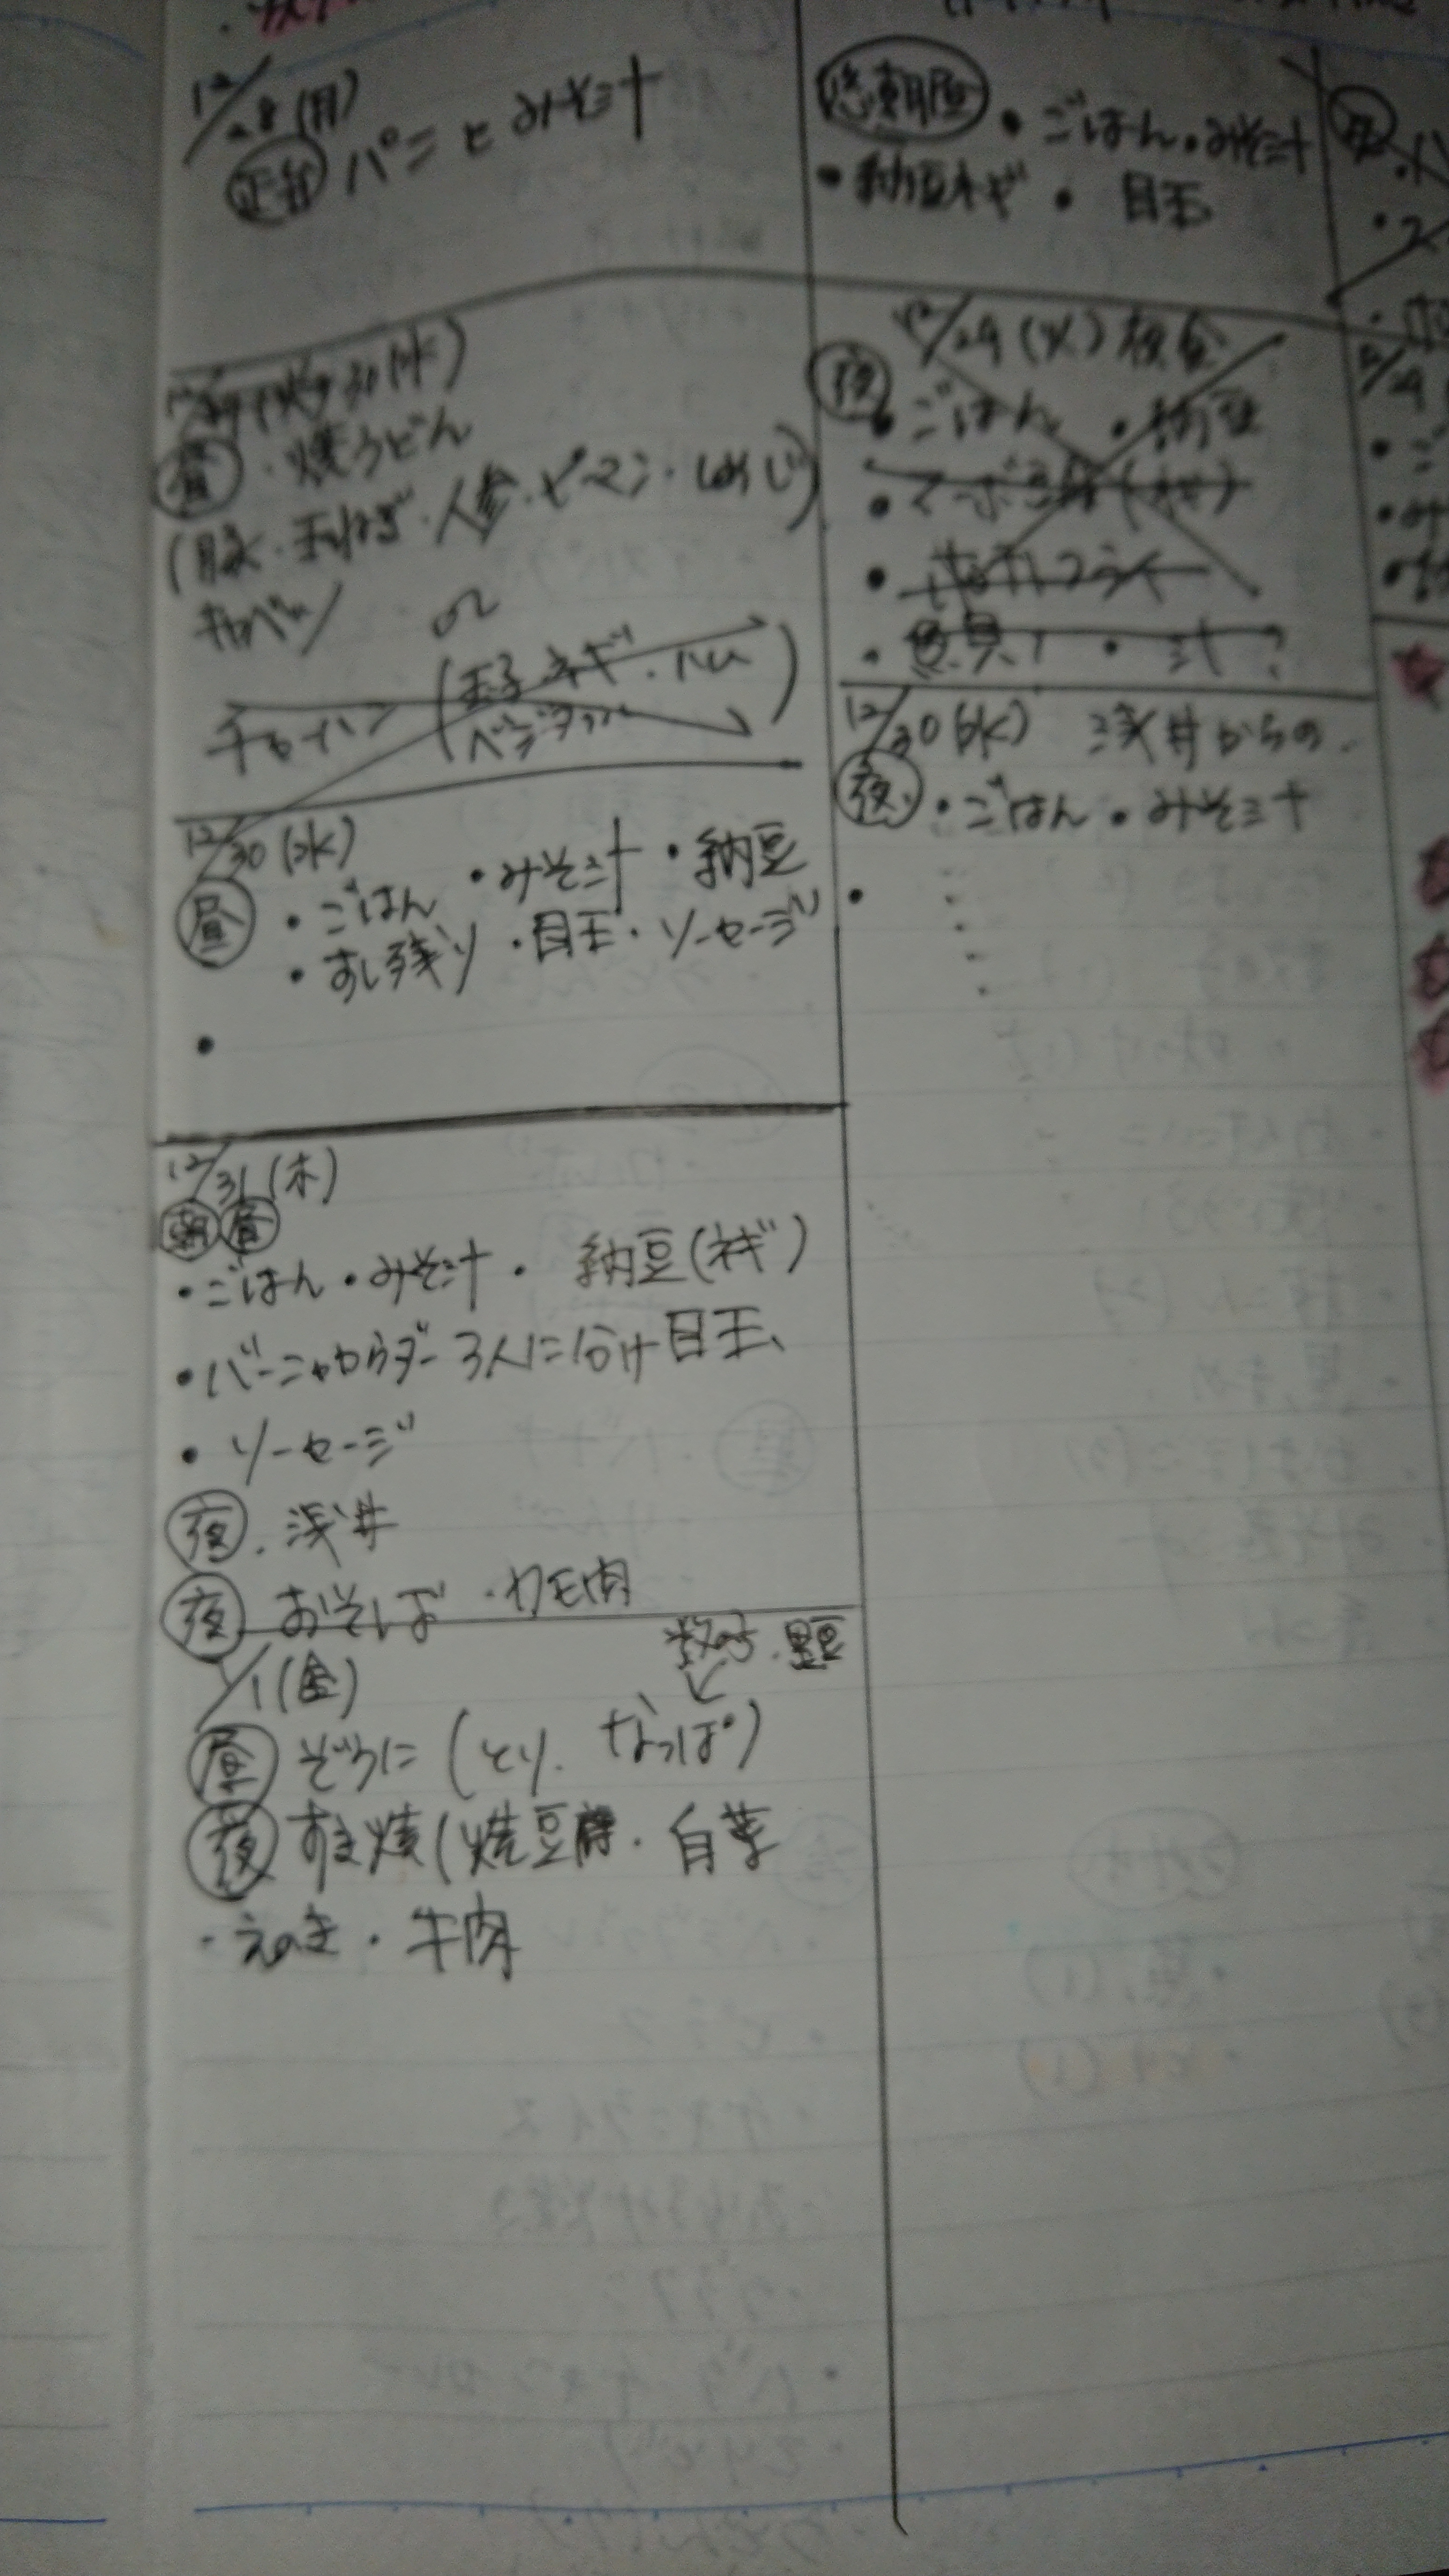 12/28(月)
パンとみそ汁
・ごはん・みそ汁
・納豆ネギ・目玉
昼・焼うどん
(豚・玉ねぎ・人参・ピーマン・しめじ)
キャベツ or
チャーハン(玉子ネギ・ハム
12/30(水)
昼・ごはん・みそ汁・納豆
・すし残り・目玉・ソーセージ
・
12/31(木)
朝昼
・ごはん・みそ汁・納豆(ネギ)
・バーニャカウダー3人に分け目玉、
・ソーセージ
夜・浅井
夜 おそば・カモ肉
1/1(金)
数の子・黒豆
昼 ぞうに(とり、なっぱ)
夜 すき焼(焼豆腐・白菜
・えのき・牛肉
12/29(火)夜食
夜・ごはん・納豆
12/30(水) 浅井からの
夜・ごはん・みそ汁
・